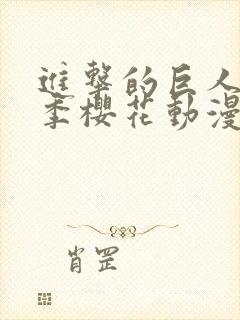 進撃的巨人
季櫻花動漫
肖罡